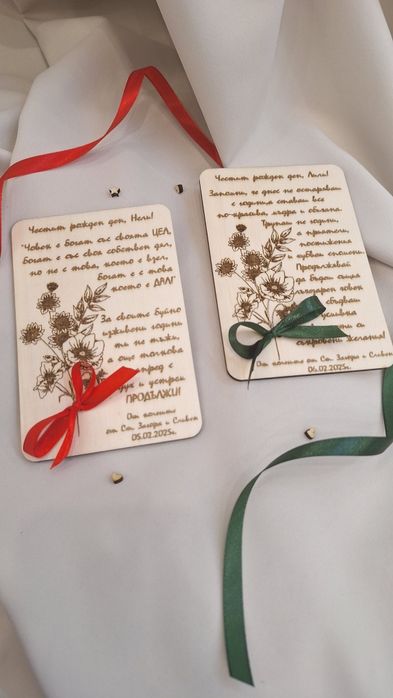 Честит рожден ден, Нели!
"Човек е богат със своята ЦЕЛ,
богат е със свой собствен дел,
но не с това, което е взел,
богат е с това
което е ДАЛ"
За своите бурно
изживени години
ти не тъжи,
а още толкова
напред с
дух и устрем
ПРОДЪЛЖИ!
От колегите
от Ст. Загора и Сливен
05.02.2025г.
Честит рожден ден, Лили!
Запомни, че днес не остаряваш
с годините ставаш все
по-красива, мъдра и обичана.
Трупаш не години,
а приятели,
постижения
и хубави спомени.
Продължавай
да бъдеш същия
човек
сбъдваш
съкровени желания!
От колегите от Ст. Загора и Сливен
06.02.2025г.